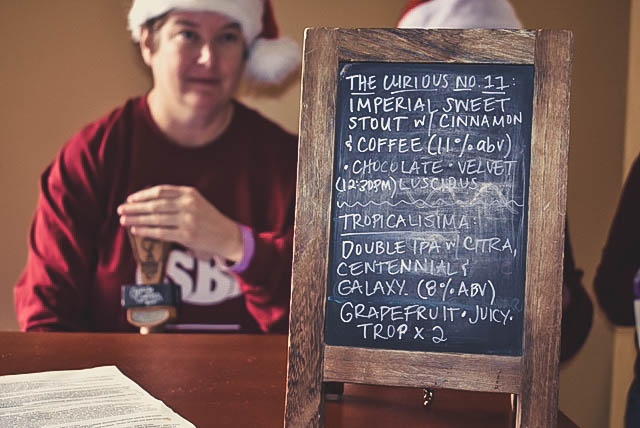 THE CURIOUS NO. 11:
IMPERIAL SWEET
STOUT W/ CINNAMON
& COFFEE (11% abv)
• CHOCOLATE • VELVET
(12:30PM) LUSCIOUS
TROPICALISIMA:
DOUBLE IPA W/ CITRA,
CENTENNIAL &
GALAXY. (8% ABV)
GRAPEFRUIT • JUICY •
TROP X 2
SB